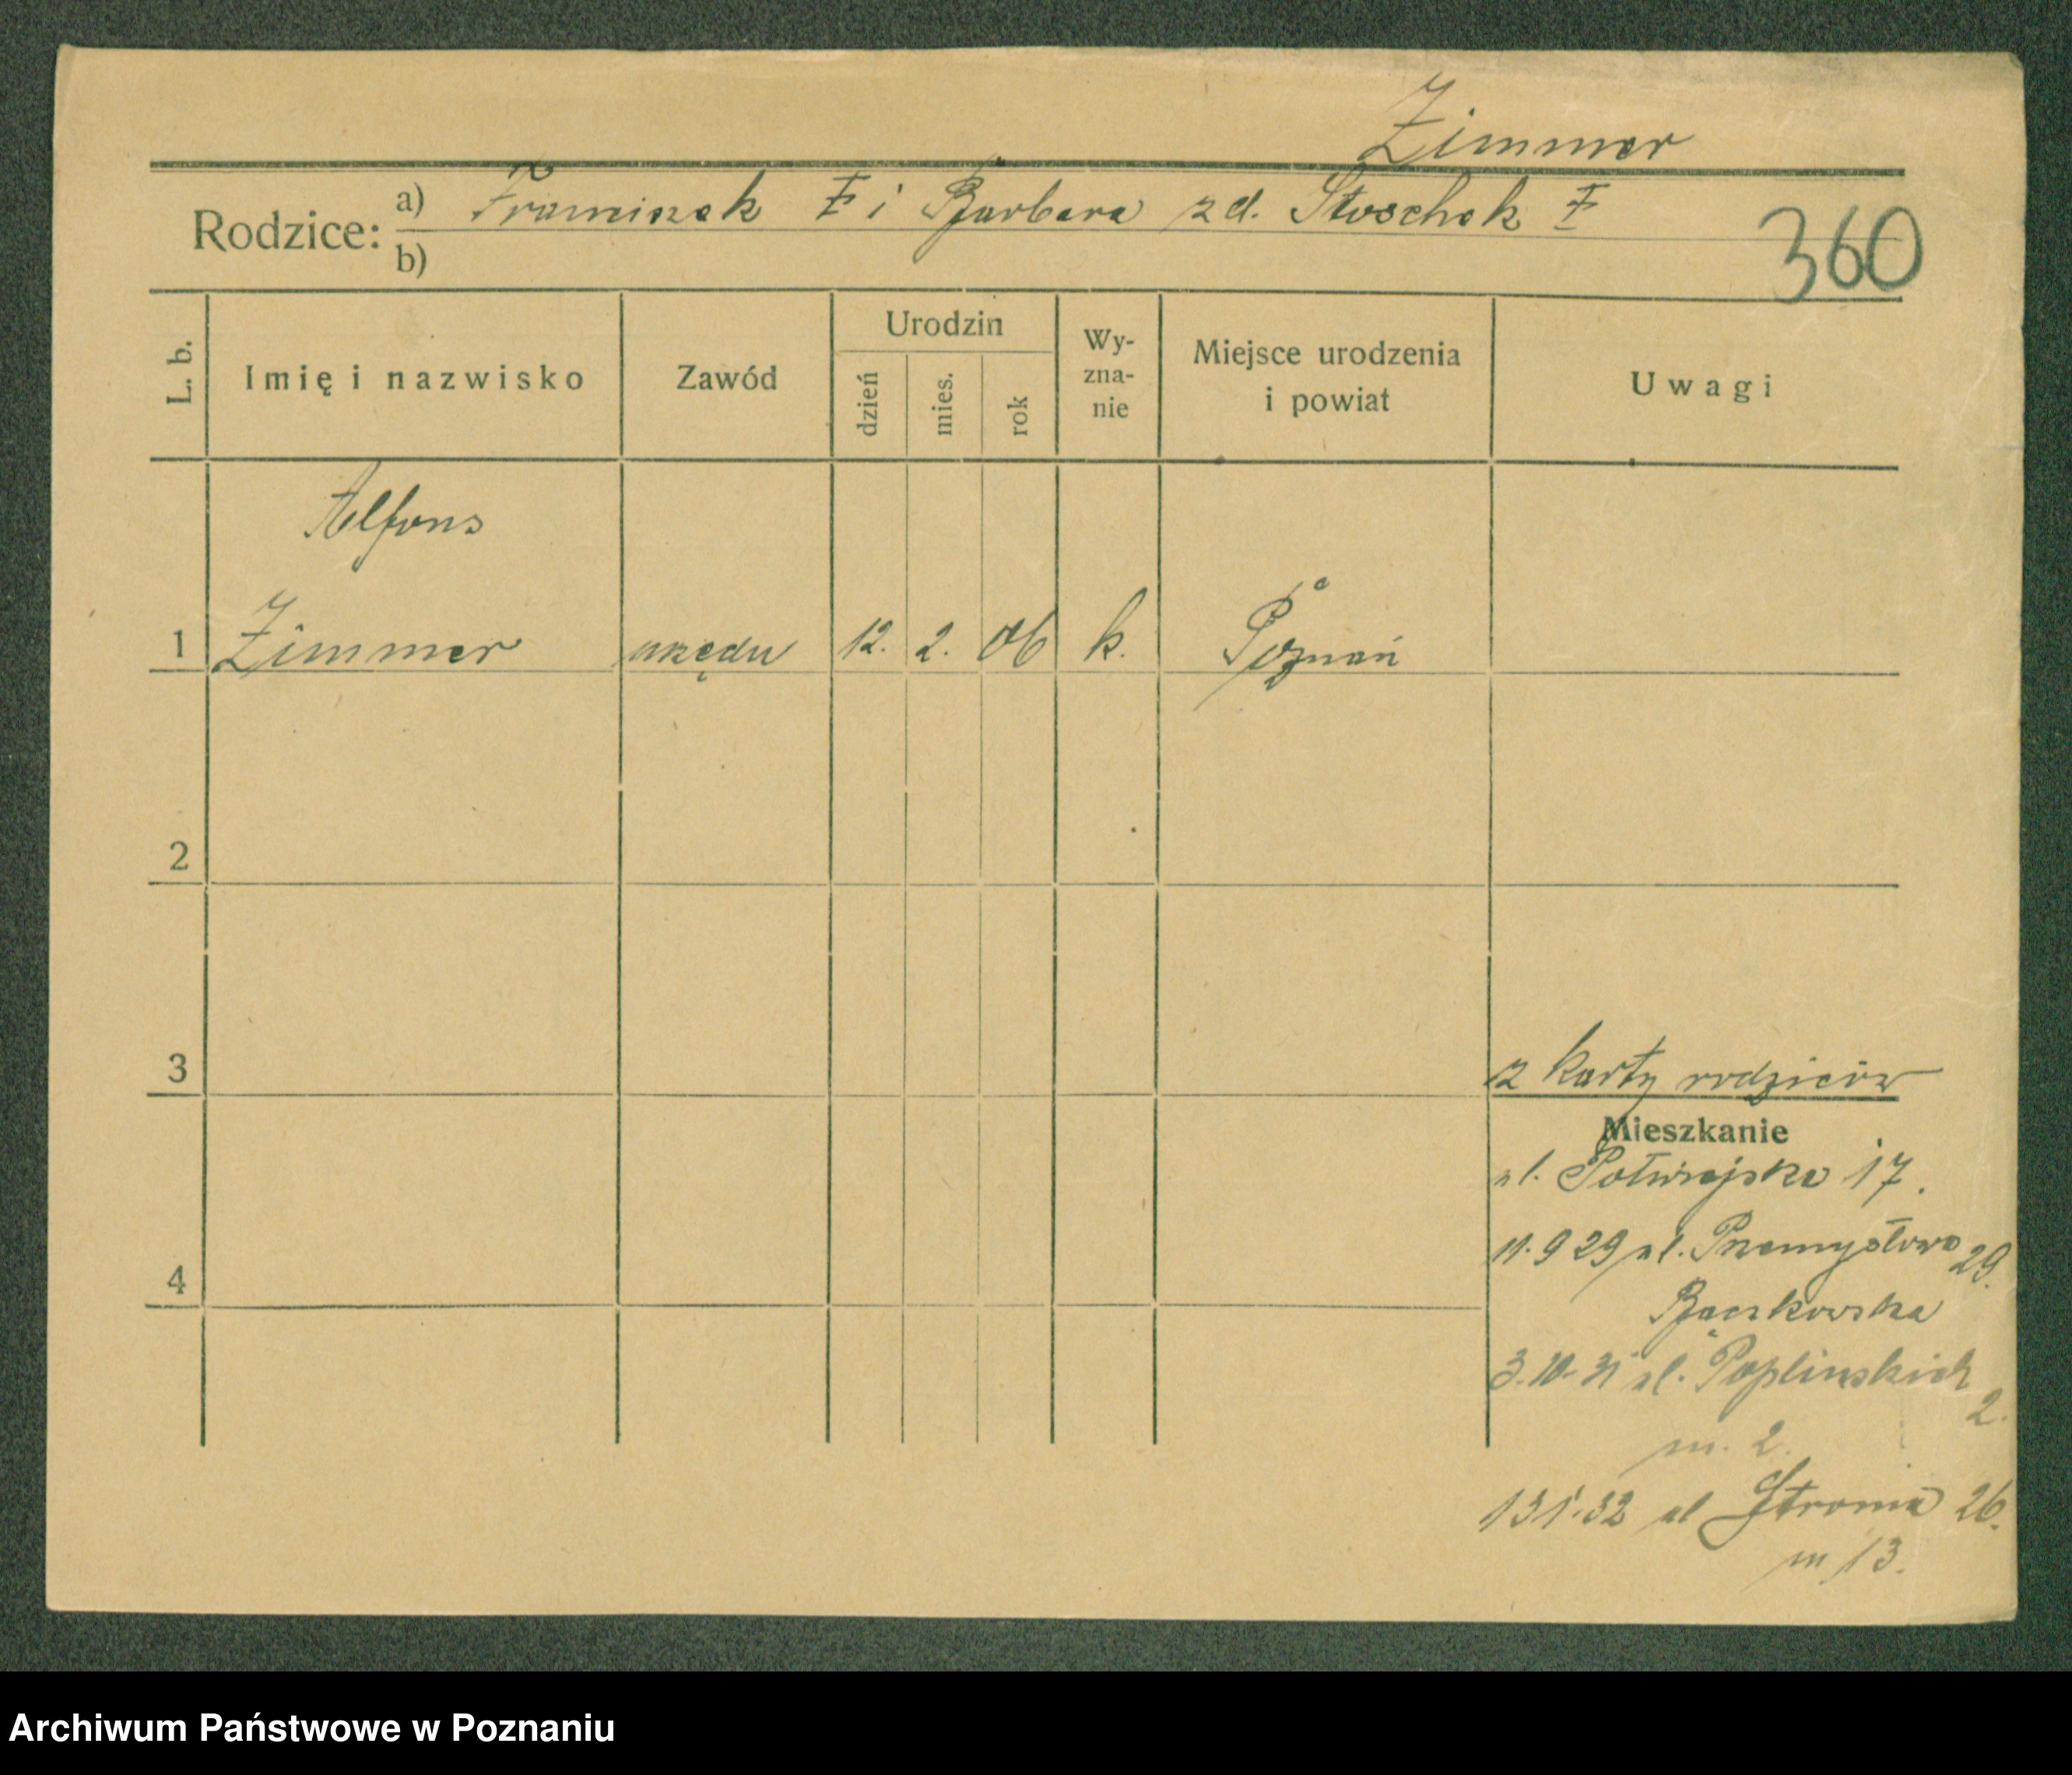 Zimmer
Rodzice: a) Franciszek ‡ i Barbara zd. Stoschek ‡
b)
360
L. b. Imię i nazwisko Zawód Urodzin dzień mies. rok Wy-zna-nie Miejsce urodzenia i powiat Uwagi
Alfons
1 Zimmer urzędn 12. 2. 06 k. Poznań
2
3
z karty rodziców
Mieszkanie
ul. Półwiejska 17.
4
11.9 29 ul. Przemysłowa 29.
Bączkowska
3.10.31 ul. Poplinskich 2.
m. 2.
ul Stroma 26.
m 13.
Archiwum Państwowe w Poznaniu